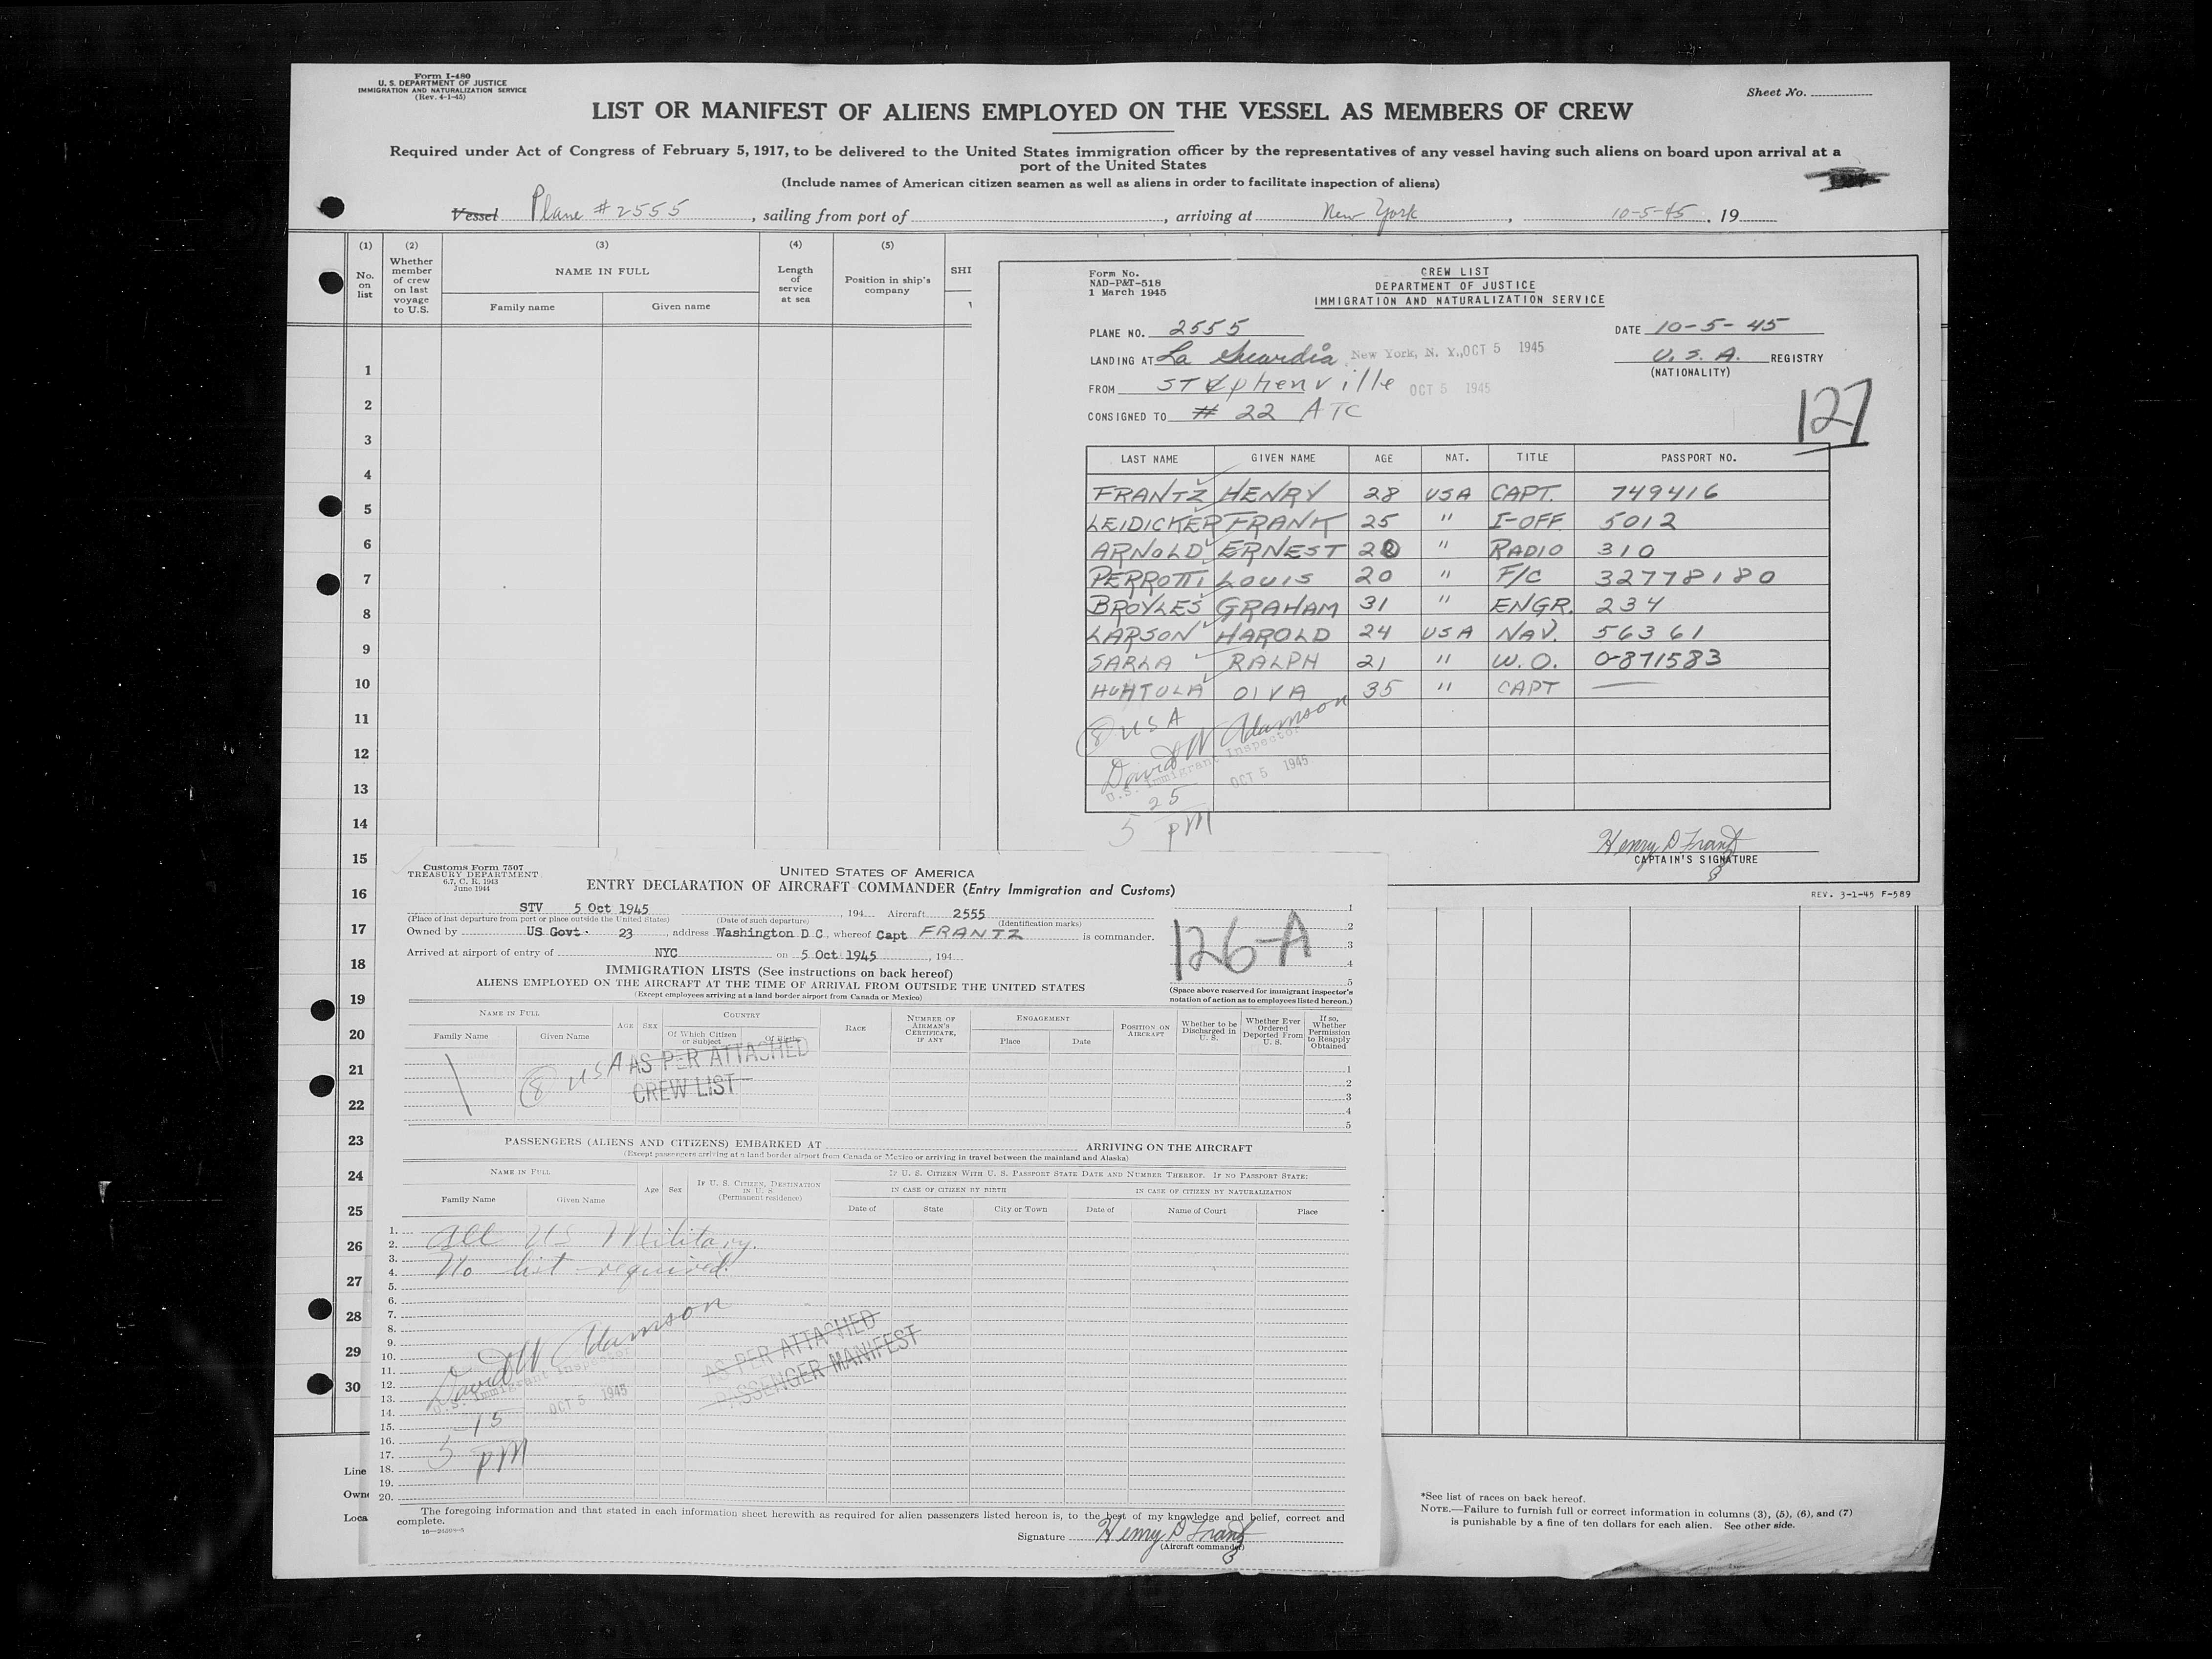 Form I-480
U. S. DEPARTMENT OF JUSTICE
IMMIGRATION AND NATURALIZATION SERVICE
(Rev. 4-1-45)
Sheet No.
LIST OR MANIFEST OF ALIENS EMPLOYED ON THE VESSEL AS MEMBERS OF CREW
Required under Act of Congress of February 5, 1917, to be delivered to the United States immigration officer by the representatives of any vessel having such aliens on board upon arrival at a
port of the United States
(Include names of American citizen seamen as well as aliens in order to facilitate inspection of aliens)
Vessel Plane # 2555, sailing from port of , arriving at New York, 10-5-45, 19
(1) (2) (3) (4) (5)
No. on list
Whether member of crew on last voyage to U.S.
NAME IN FULL
Family name Given name
Length of service at sea
Position in ship's company
SHI
1
2
3
4
5
6
7
8
9
10
11
12
13
14
15
16
17
18
19
20
21
22
23
24
25
26
27
28
29
30
Line
Owne
Loca
Form No.
NAD-P&T-518
1 March 1945
CREW LIST
DEPARTMENT OF JUSTICE
IMMIGRATION AND NATURALIZATION SERVICE
PLANE NO. 2555 DATE 10-5-45
LANDING AT La Guardia New York, N. Y., OCT 5 1945 U.S.A. REGISTRY
(NATIONALITY)
FROM STephenville OCT 5 1945
CONSIGNED TO # 22 ATC
127
LAST NAME GIVEN NAME AGE NAT. TITLE PASSPORT NO.
FRANTZ HENRY 28 USA CAPT. 749416
LEIDICKER FRANK 25 " 1-OFF 5012
ARNOLD ERNEST " RADIO 310
PERROTTI LOUIS 20 " F/C 32778180
BROYLES GRAHAM 31 " ENGR. 234
LARSON HAROLD 24 USA NAV. 56361
SARLA RALPH 21 " W.O. 0-871583
HUHTULA OIVA 35 " CAPT —
8 USA
David W Adamson
U.S. Immigrant Inspector
OCT 5 1945
5 25 PM
Henry D Frantz
CAPTAIN'S SIGNATURE
REV. 3-1-45 F-589
Customs Form 7507
TREASURY DEPARTMENT
6.7, C. R. 1943
June 1944
UNITED STATES OF AMERICA
ENTRY DECLARATION OF AIRCRAFT COMMANDER (Entry Immigration and Customs)
STV 5 Oct 1945, 194 Aircraft 2555
(Place of last departure from port or place outside the United States) (Date of such departure) (Identification marks)
Owned by US Govt. 23, address Washington D C, whereof Capt FRANTZ is commander.
Arrived at airport of entry of NYC on 5 Oct 1945, 194
1
2
3
4
5
126-A
(Space above reserved for immigrant inspector's
notation of action as to employees listed hereon.)
IMMIGRATION LISTS (See instructions on back hereof)
ALIENS EMPLOYED ON THE AIRCRAFT AT THE TIME OF ARRIVAL FROM OUTSIDE THE UNITED STATES
(Except employees arriving at a land border airport from Canada or Mexico)
NAME IN FULL
Family Name Given Name
AGE SEX
COUNTRY
Of Which Citizen or Subject Of Birth
RACE
NUMBER OF AIRMAN'S CERTIFICATE, IF ANY
ENGAGEMENT
Place Date
POSITION ON AIRCRAFT
Whether to be Discharged in U. S.
Whether Ever Ordered Deported From U. S.
If so, Whether Permission to Reapply Obtained
8 USA
AS PER ATTACHED
CREW LIST
1
2
3
4
5
PASSENGERS (ALIENS AND CITIZENS) EMBARKED AT ARRIVING ON THE AIRCRAFT
(Except passengers arriving at a land border airport from Canada or Mexico or arriving in travel between the mainland and Alaska)
NAME IN FULL
Family Name Given Name
Age Sex
IF U. S. CITIZEN, DESTINATION IN U. S. (Permanent residence)
IF U. S. CITIZEN WITH U. S. PASSPORT STATE DATE AND NUMBER THEREOF. IF NO PASSPORT STATE:
IN CASE OF CITIZEN BY BIRTH IN CASE OF CITIZEN BY NATURALIZATION
Date of State City or Town Date of Name of Court Place
1.
2. All US Military.
3.
4. No list required.
5.
6.
7.
8.
9.
10.
11.
12.
13.
14.
15.
16.
17.
18.
19.
20.
David W Adamson
U.S. Immigrant Inspector
OCT 5 1945
5 15 PM
AS PER ATTACHED
PASSENGER MANIFEST
The foregoing information and that stated in each information sheet herewith as required for alien passengers listed hereon is, to the best of my knowledge and belief, correct and
complete.
Signature Henry D Frantz
(Aircraft commander)
*See list of races on back hereof.
NOTE.—Failure to furnish full or correct information in columns (3), (5), (6), and (7)
is punishable by a fine of ten dollars for each alien. See other side.